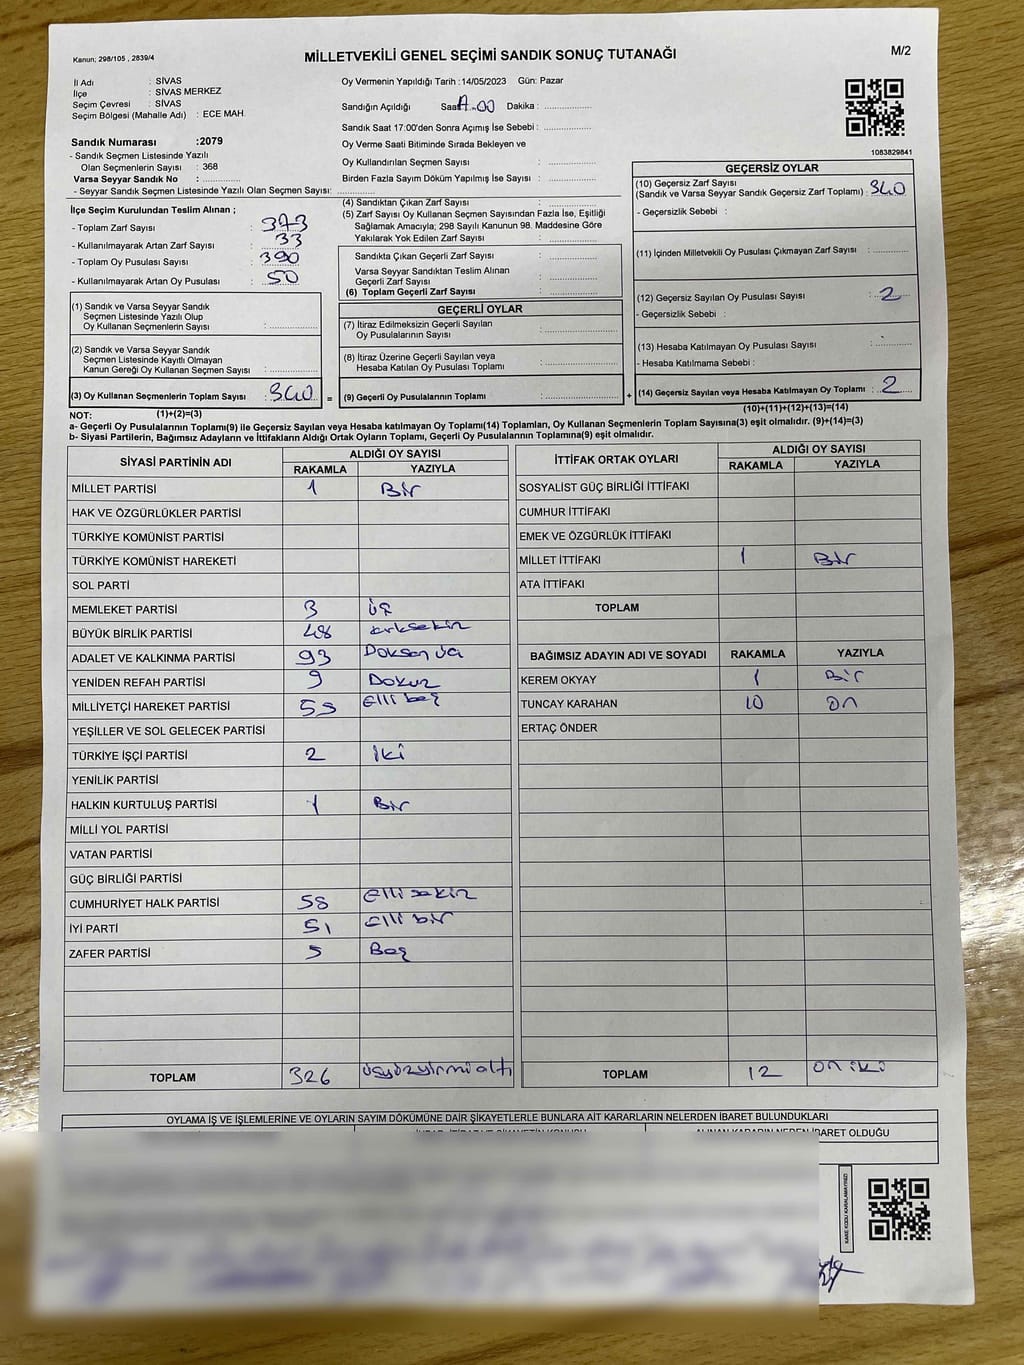 Kanun; 298/105 , 2839/4
MİLLETVEKİLİ GENEL SEÇİMİ SANDIK SONUÇ TUTANAĞI
M/2
İl Adı : SİVAS
İlçe : SİVAS MERKEZ
Seçim Çevresi : SİVAS
Seçim Bölgesi (Mahalle Adı) : ECE MAH.
Sandık Numarası :2079
- Sandık Seçmen Listesinde Yazılı
Olan Seçmenlerin Sayısı : 368
Varsa Seyyar Sandık No :
- Seyyar Sandık Seçmen Listesinde Yazılı Olan Seçmen Sayısı:
Oy Vermenin Yapıldığı Tarih :14/05/2023 Gün: Pazar
Sandığın Açıldığı Saat: Dakika :
Sandık Saat 17:00'den Sonra Açımış İse Sebebi :
Oy Verme Saati Bitiminde Sırada Bekleyen ve
Oy Kullandırılan Seçmen Sayısı :
Birden Fazla Sayım Döküm Yapılmış İse Sayısı :
1083829841
İlçe Seçim Kurulundan Teslim Alınan ;
- Toplam Zarf Sayısı : 373
- Kullanılmayarak Artan Zarf Sayısı : 33
- Toplam Oy Pusulası Sayısı : 390
- Kullanılmayarak Artan Oy Pusulası : 50
(1) Sandık ve Varsa Seyyar Sandık
Seçmen Listesinde Yazılı Olup
Oy Kullanan Seçmenlerin Sayısı :
(2) Sandık ve Varsa Seyyar Sandık
Seçmen Listesinde Kayıtlı Olmayan
Kanun Gereği Oy Kullanan Seçmen Sayısı :
(3) Oy Kullanan Seçmenlerin Toplam Sayısı : 340 =
(4) Sandıktan Çıkan Zarf Sayısı :
(5) Zarf Sayısı Oy Kullanan Seçmen Sayısından Fazla İse, Eşitliği
Sağlamak Amacıyla; 298 Sayılı Kanunun 98. Maddesine Göre
Yakılarak Yok Edilen Zarf Sayısı :
Sandıkta Çıkan Geçerli Zarf Sayısı :
Varsa Seyyar Sandıktan Teslim Alınan
Geçerli Zarf Sayısı :
(6) Toplam Geçerli Zarf Sayısı :
GEÇERLİ OYLAR
(7) İtiraz Edilmeksizin Geçerli Sayılan
Oy Pusulalarının Sayısı :
(8) İtiraz Üzerine Geçerli Sayılan veya
Hesaba Katılan Oy Pusulası Toplamı :
(9) Geçerli Oy Pusulalarının Toplamı : +
GEÇERSİZ OYLAR
(10) Geçersiz Zarf Sayısı
(Sandık ve Varsa Seyyar Sandık Geçersiz Zarf Toplamı) : 340
- Geçersizlik Sebebi :
(11) İçinden Milletvekili Oy Pusulası Çıkmayan Zarf Sayısı :
(12) Geçersiz Sayılan Oy Pusulası Sayısı : 2
- Geçersizlik Sebebi :
(13) Hesaba Katılmayan Oy Pusulası Sayısı :
- Hesaba Katılmama Sebebi :
(14) Geçersiz Sayılan veya Hesaba Katılmayan Oy Toplamı : 2
NOT: (1)+(2)=(3) (10)+(11)+(12)+(13)=(14)
a- Geçerli Oy Pusulalarının Toplamı(9) ile Geçersiz Sayılan veya Hesaba katılmayan Oy Toplamı(14) Toplamları, Oy Kullanan Seçmenlerin Toplam Sayısına(3) eşit olmalıdır. (9)+(14)=(3)
b- Siyasi Partilerin, Bağımsız Adayların ve İttifakların Aldığı Ortak Oyların Toplamı, Geçerli Oy Pusulalarının Toplamına(9) eşit olmalıdır.
SİYASİ PARTİNİN ADI ALDIĞI OY SAYISI
RAKAMLA YAZIYLA
MİLLET PARTİSİ 1 Bir
HAK VE ÖZGÜRLÜKLER PARTİSİ
TÜRKİYE KOMÜNİST PARTİSİ
TÜRKİYE KOMÜNİST HAREKETİ
SOL PARTİ
MEMLEKET PARTİSİ 3 üç
BÜYÜK BİRLİK PARTİSİ 48 kırksekiz
ADALET VE KALKINMA PARTİSİ 93 Doksan üç
YENİDEN REFAH PARTİSİ 9 Dokuz
MİLLİYETÇİ HAREKET PARTİSİ 55 elli beş
YEŞİLLER VE SOL GELECEK PARTİSİ
TÜRKİYE İŞÇİ PARTİSİ 2 iki
YENİLİK PARTİSİ
HALKIN KURTULUŞ PARTİSİ 1 Bir
MİLLİ YOL PARTİSİ
VATAN PARTİSİ
GÜÇ BİRLİĞİ PARTİSİ
CUMHURİYET HALK PARTİSİ 58 elli sekiz
İYİ PARTİ 51 elli bir
ZAFER PARTİSİ 5 Beş
TOPLAM 326 üçyüzyirmialtı
İTTİFAK ORTAK OYLARI ALDIĞI OY SAYISI
RAKAMLA YAZIYLA
SOSYALİST GÜÇ BİRLİĞİ İTTİFAKI
CUMHUR İTTİFAKI
EMEK VE ÖZGÜRLÜK İTTİFAKI
MİLLET İTTİFAKI 1 Bir
ATA İTTİFAKI
TOPLAM
BAĞIMSIZ ADAYIN ADI VE SOYADI RAKAMLA YAZIYLA
KEREM OKYAY 1 Bir
TUNCAY KARAHAN 10 on
ERTAÇ ÖNDER
TOPLAM 12 on iki
OYLAMA İŞ VE İŞLEMLERİNE VE OYLARIN SAYIM DÖKÜMÜNE DAİR ŞİKAYETLERLE BUNLARA AİT KARARLARIN NELERDEN İBARET BULUNDUKLARI
İBARET OLDUĞU
KARE KODU KARALAMAYINIZ!